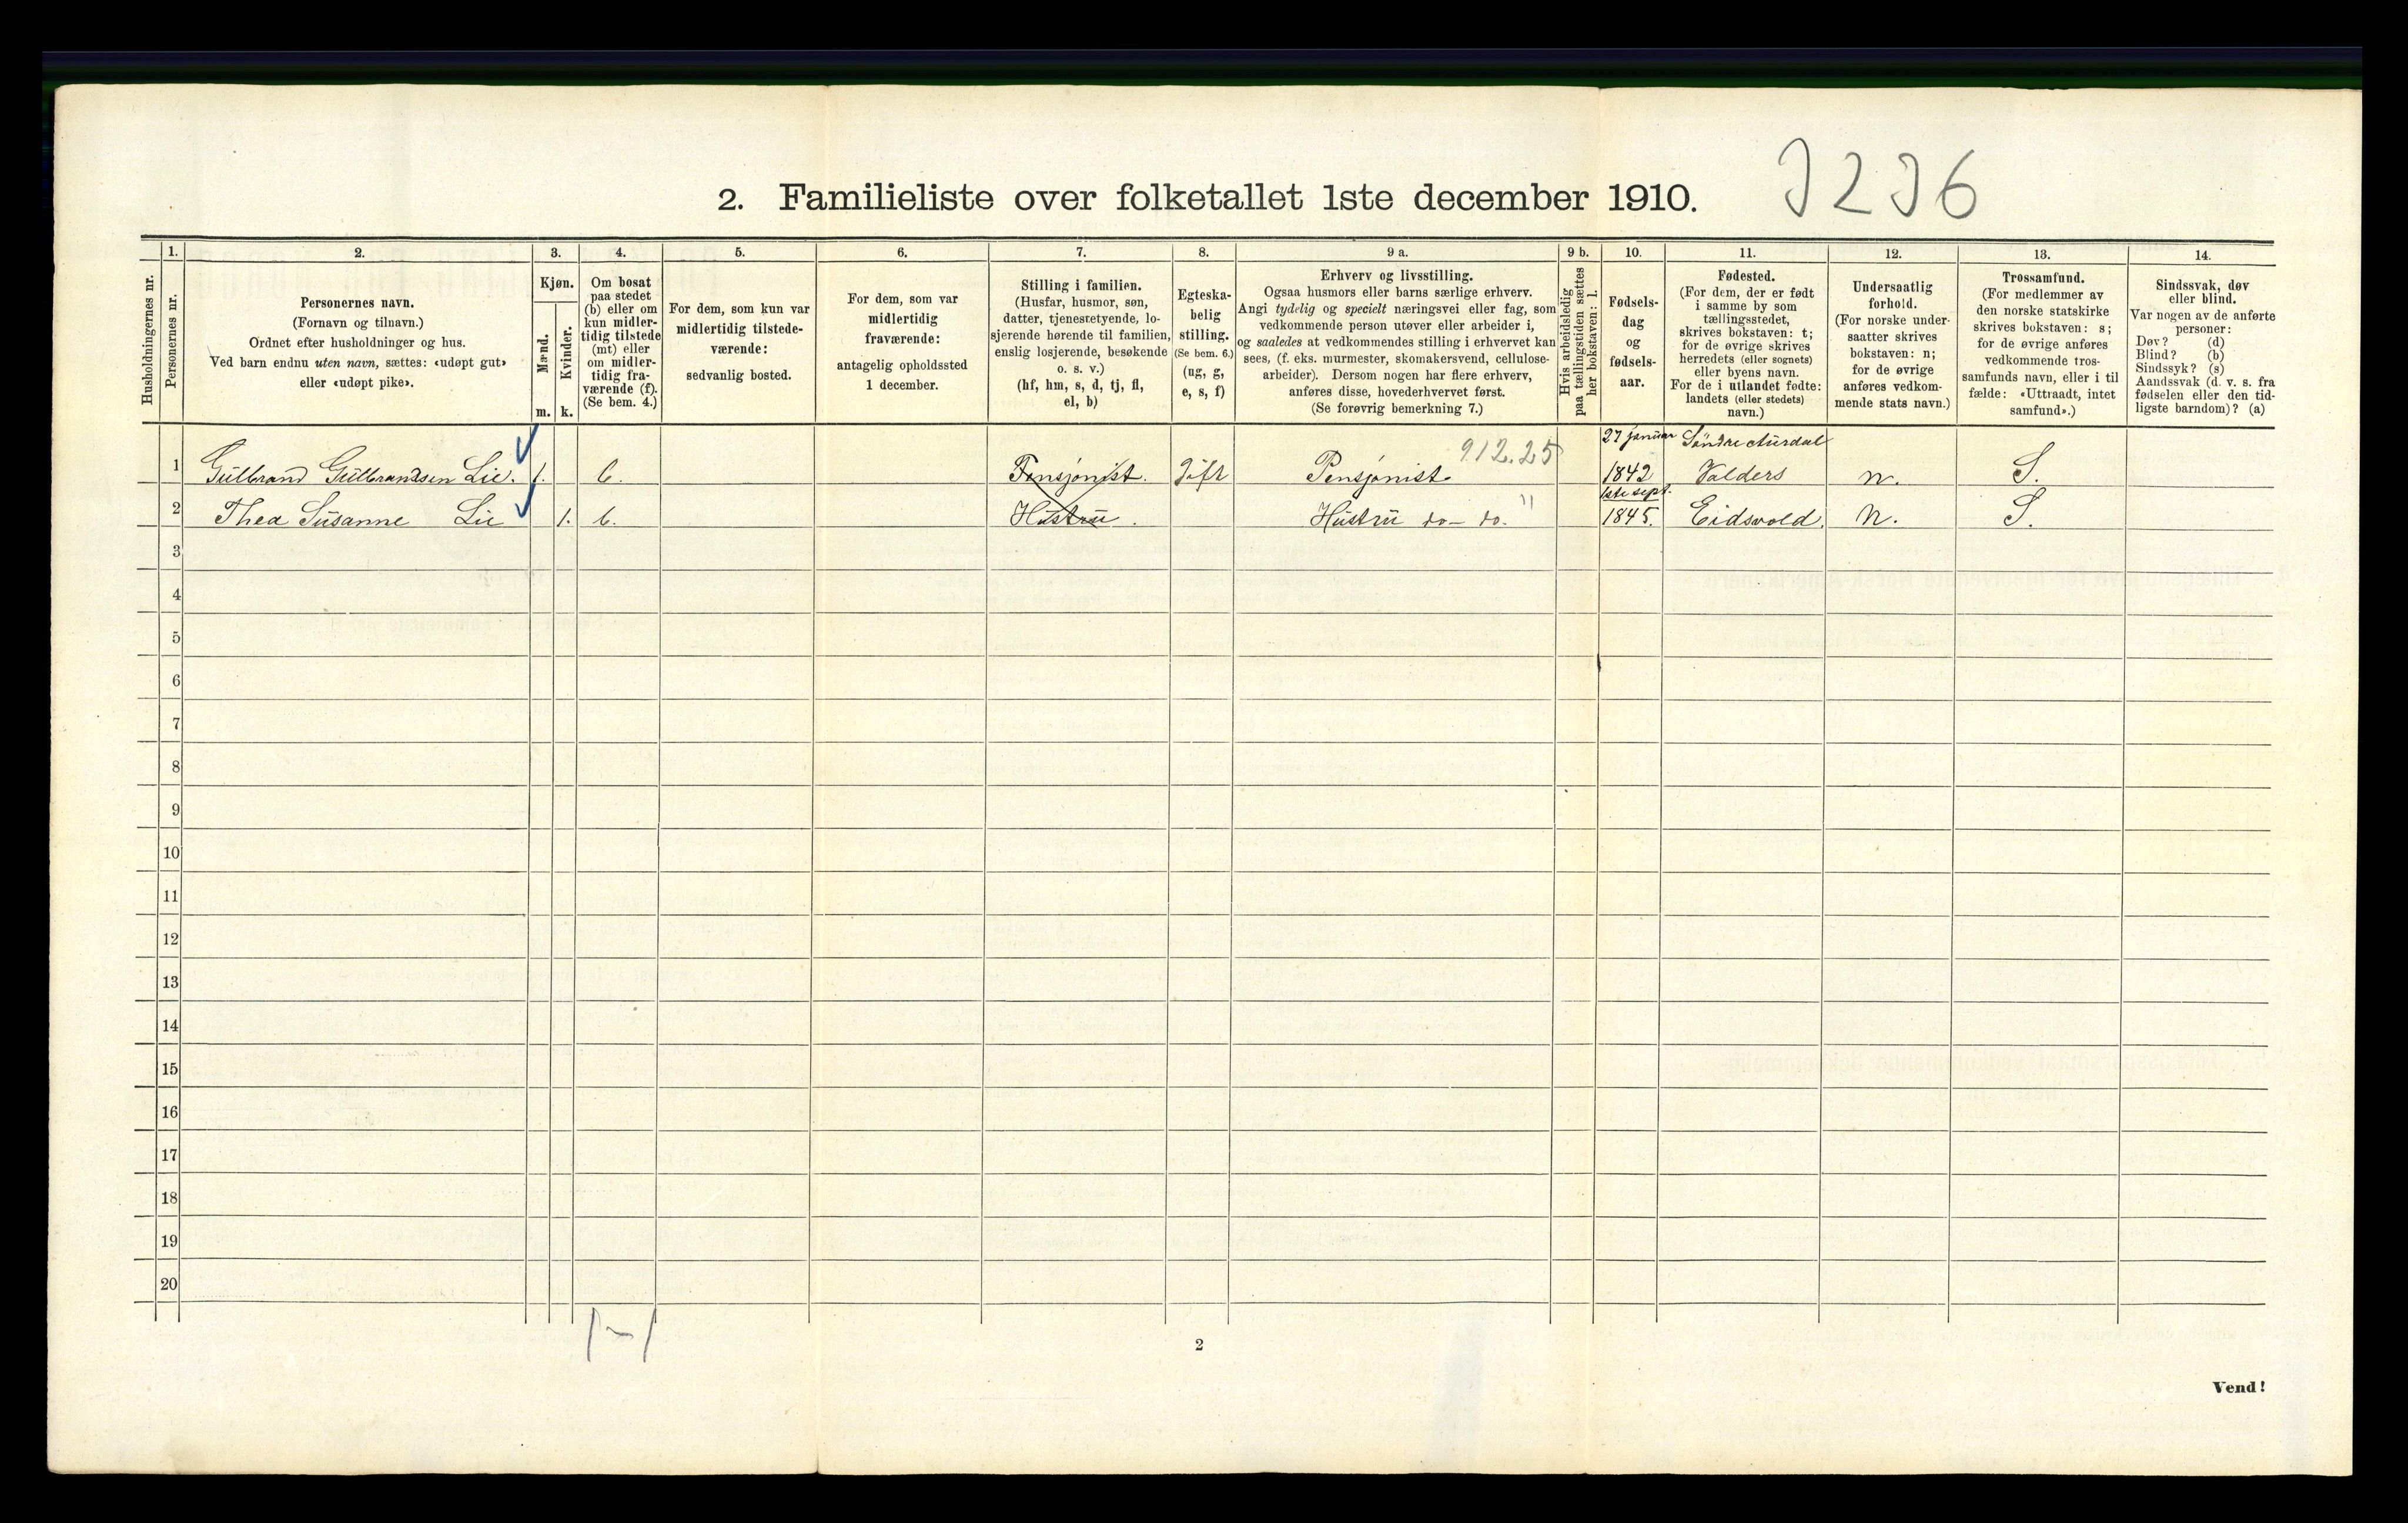 2. Familieliste over folketallet 1ste december 1910.
Husholdningernes nr.
1.
Personernes nr.
2.
Personernes navn.
(Fornavn og tilnavn.)
Ordnet efter husholdninger og hus.
Ved barn endnu uten navn, sættes: «udøpt gut»
eller «udøpt pike».
3.
Kjøn.
Mænd.
m.
Kvinder.
k.
4.
Om bosat
paa stedet
(b) eller om
kun midler-
tidig tilstede
(mt) eller
om midler-
tidig fra-
værende (f).
(Se bem. 4.)
5.
For dem, som kun var
midlertidig tilstede-
værende:
sedvanlig bosted.
6.
For dem, som var
midlertidig
fraværende:
antagelig opholdssted
1 december.
7.
Stilling i familien.
(Husfar, husmor, søn,
datter, tjenestetyende, lo-
sjerende hørende til familien,
enslig losjerende, besøkende
o. s. v.)
(hf, hm, s, d, tj, fl,
el, b)
8.
Egteska-
belig
stilling.
(Se bem. 6.)
(ug, g,
e, s, f)
9 a.
Erhverv og livsstilling.
Ogsaa husmors eller barns særlige erhverv.
Angi tydelig og specielt næringsvei eller fag, som
vedkommende person utøver eller arbeider i,
og saaledes at vedkommendes stilling i erhvervet kan
sees, (f. eks. murmester, skomakersvend, cellulose-
arbeider). Dersom nogen har flere erhverv,
anføres disse, hovederhvervet først.
(Se forøvrig bemerkning 7.)
9 b.
Hvis arbeidsledig
paa tællingstiden sættes
her bokstaven: l.
10.
Fødsels-
dag
og
fødsels-
aar.
11.
Fødested.
(For dem, der er født
i samme by som
tællingsstedet,
skrives bokstaven: t;
for de øvrige skrives
herredets (eller sognets)
eller byens navn.
For de i utlandet fødte:
landets (eller stedets)
navn.)
12.
Undersaatlig
forhold.
(For norske under-
saatter skrives
bokstaven: n;
for de øvrige
anføres vedkom-
mende stats navn.)
13.
Trossamfund.
(For medlemmer av
den norske statskirke
skrives bokstaven: s;
for de øvrige anføres
vedkommende tros-
samfunds navn, eller i til
fælde: «Uttraadt, intet
samfund».)
14.
Sindssvak, døv
eller blind.
Var nogen av de anførte
personer:
Døv? (d)
Blind? (b)
Sindssyk? (s)
Aandssvak (d. v. s. fra
fødselen eller den tid-
ligste barndom)? (a)
27 januar Söndre Aurdal
912.25
1 Gulbrand Gulbrandsen Lie. 1. b. Pensjonist. Gift Pensjonist 1842 Valders n. S.
1ste sept.
2 Thea Susanne Lie 1. b. Hustru. Hustru do - do. " 1845. Eidsvold. n. S.
3
4
5
6
7
8
9
10
11
12
13
14
15
16
17
18
19
20
1-1
2
Vend!